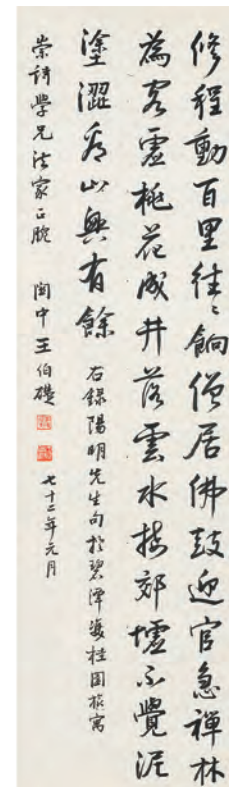 修程動百里往〻餉僧居佛鼓迎官急禪林
為客虛桃花成井落雲水接郊墟不覺泥
塗澀看山興有餘 右錄陽明先生句於碧潭雙桂園旅寓
崇詩學兄法家正腕 閩中王伯礎 七十二年元月